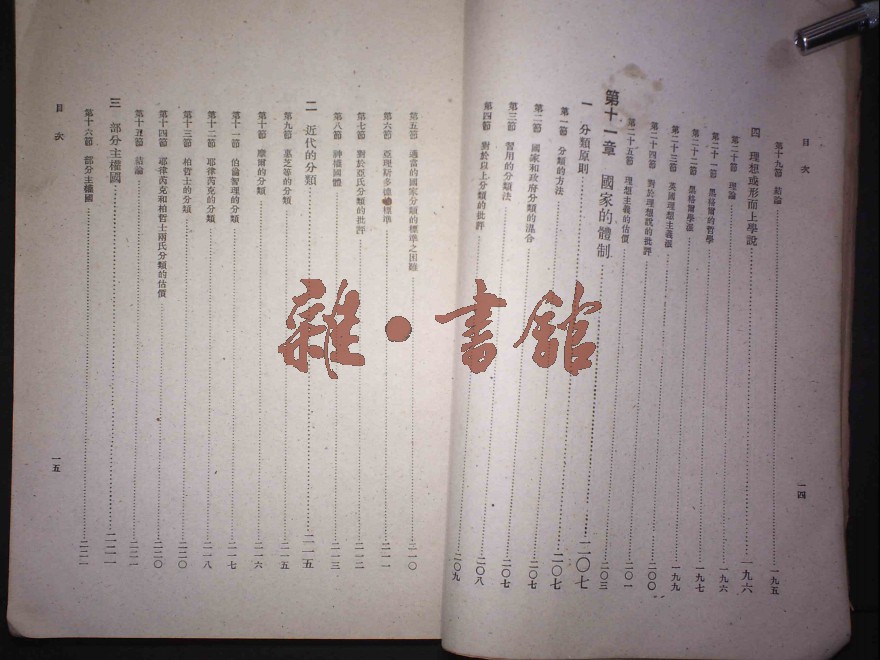 目次
一四
第十九節 結論 一九五
四 理想或形而上學說 一九六
第二十節 理論 一九六
第二十一節 黑格爾的哲學 一九七
第二十二節 黑格爾學派 一九九
第二十三節 英國理想主義派
第二十四節 對於理想說的批評 二〇〇
第二十五節 理想主義的估價 二〇一
第十一章 國家的體制 二〇三
一 分類原則 二〇七
第一節 分類的方法 二〇七
第二節 國家和政府分類的混合 二〇七
第三節 習用的分類法 二〇七
第四節 對於以上分類的批評 二〇八
二〇九
第五節 適當的國家分類的標準之困難 二一〇
第六節 亞理斯多德 標準 二一一
第七節 對於亞氏分類的批評 二一二
第八節 神權國體 二一三
二 近代的分類 二一五
第九節 墓芝等的分類 二一五
第十節 摩爾的分類 二一六
第十一節 伯倫智理的分類 二一七
第十二節 耶律芮克的分類 二一八
第十三節 柏哲士的分類 二二〇
第十四節 耶律芮克和柏哲士兩氏分類的估價 二二〇
第十五節 結論 二二一
三 部分主權國 二二一
第十六節 部分主權國 二二一
目次
一五
雜·書館